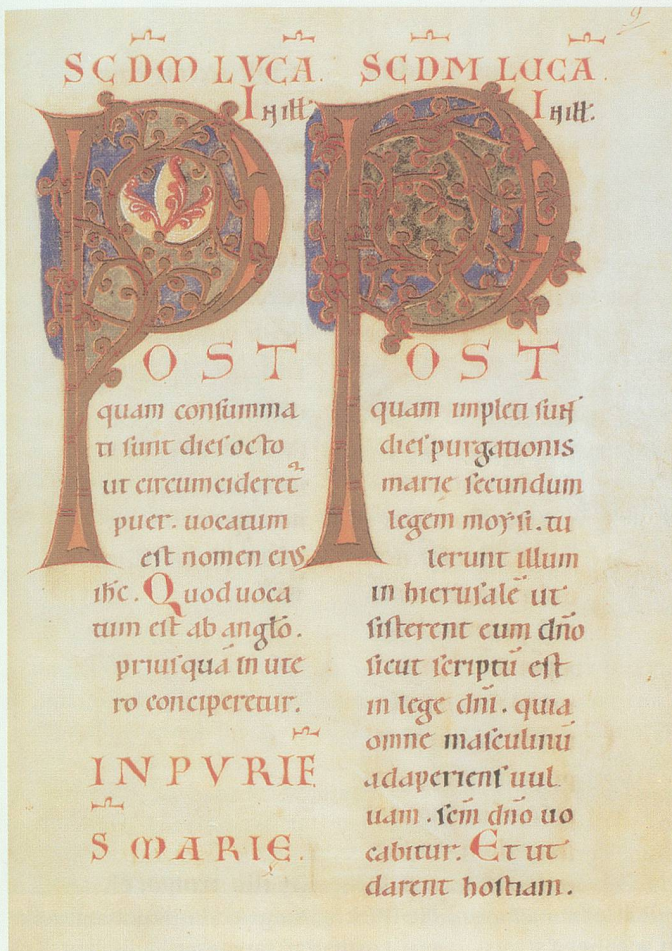 SCDM LVCA.
In ill.
POST
quam consumma
ti sunt dies octo
ut circumcideret̃
puer. uocatum
est nomen eius
ihc. Quod uoca
tum est ab anglo.
priusquā in ute
ro conciperetur.
IN PVRIF̄
S MARIĘ.
SCDM LUCA.
In ill.
POST
quam impleti sunt
dies purgationis
marie secundum
legem moysi. tu
lerunt illum
in hierusalē ut
sisterent eum dño
sicut scriptū est
in lege dñi. quia
omne masculinū
adaperiens uul
uam. scm̄ dño uo
cabitur. Et ut
darent hostiam.
9